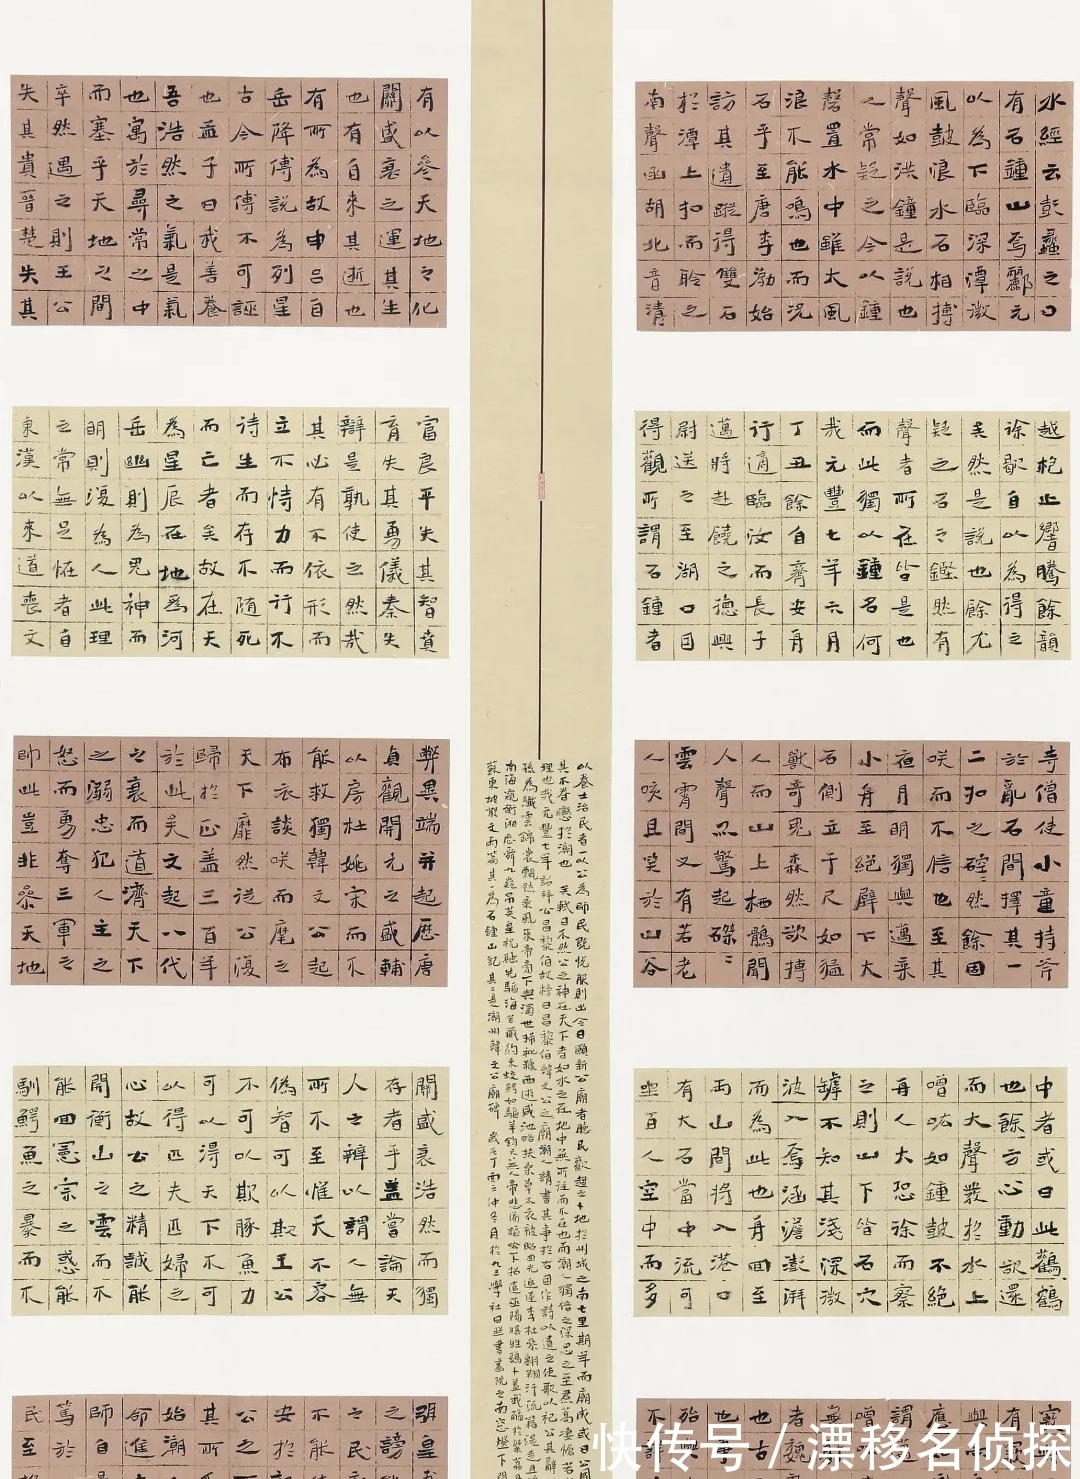 水經云彭蠡之口
有石鍾山焉酈元
以為下臨深潭微
風鼓浪水石相搏
聲如洪鐘是說也
人常疑之今以鍾
磬置水中雖大風
浪不能鳴也而況
石乎至唐李渤始
訪其遺蹤得雙石
於潭上扣而聆之
南聲函胡北音清
越枹止響騰餘韻
徐歇自以為得之
矣然是說也餘尤
疑之石之鏗然有
聲者所在皆是也
而此獨以鍾名何
哉元豐七年六月
丁丑餘自齊安舟
行適臨汝而長子
邁將赴饒之德興
尉送之至湖口因
得觀所謂石鍾者
寺僧使小童持斧
於亂石間擇其一
二扣之硿然餘固
咲而不信也至其
夜月明獨與邁乘
小舟至絕壁下大
石側立千尺如猛
獸奇鬼森然欲搏
人而山上栖鶻聞
人聲亦驚起磔二
雲霄間又有若老
人咳且笑於山谷
中者或曰此鸛鶴
也餘方心動欲還
而大聲發於水上
噌吰如鍾鼓不絕
舟人大恐徐而察
之則山下皆石穴
罅不知其淺深微
波入焉涵澹澎湃
而為此也舟回至
兩山間將入港口
有大石當中流可
坐百人空中而多
竅
有
與
應
謂
噌
無
者魏
也古
也
殆
不
以養士治民者一以公為師民既悅服則出令曰願新公廟者聽民歡趨之卜地於州城之南七里期年而廟成或曰公
其不眷戀於潮也 矣軾曰不然公之神在天下者如水之在地中無所往而不在也而潮人獨信之深思之至焄蒿悽愴若
理也哉元豐七年詔拜公昌黎伯故榜曰昌黎伯韓文公之廟潮人請書其事於石因作詩以遺之使歌以祀公其辭
孫為織雲錦裳飄然乘風來帝旁下與濁世掃秕糠西遊咸池略扶桑草木衣被昭回光追逐李杜參翱翔汗流籍湜走且
南海窺衡湘歷舜九嶷弔英皇祝融先驅海若藏約束蛟鱷如驅羊鈞天無人帝悲傷謳吟下招遣巫陽犦牲雞卜羞我觴於粲荔
蘇東坡散文兩篇其一為石鍾山記其二是潮州韓文公廟碑 歲在丁酉之仲冬月於九三學社日照書畫院之南窗燈下
有以參天地之化
關盛衰之運其生
也有自來其逝也
有所為故申呂自
岳降傅說為列星
古今所傳不可誣
也孟子曰我善養
吾浩然之氣是氣
也寓於尋常之中
而塞乎天地之間
卒然遇之則王公
失其貴晉楚失其
富良平失其智賁
育失其勇儀秦失
辯是孰使之然哉
其必有不依形而
立不恃力而行不
待生而存不隨死
而亡者矣故在天
為星辰在地為河
岳幽則為鬼神而
明則復為人此理
之常無足怪者自
東漢以來道喪文
弊異端并起歷唐
貞觀開元之盛輔
以房杜姚宋而不
能救獨韓文公起
布衣談咲而麾之
天下靡然從公復
歸於正蓋三百年
於此矣文起八代
之衰而道濟天下
之溺忠犯人主之
怒而勇奪三軍之
帥此豈非參天地
關盛衰浩然而獨
存者乎蓋嘗論天
人之辨以謂人無
所不至惟天不容
偽智可以欺王公
不可以欺豚魚力
可以得天下不可
以得匹夫匹婦之
心故公之精誠能
開衡山之雲而不
能回憲宗之惑能
馴鱷魚之暴而不
弭皇
之謗
之民
不能
安於
公之
其所
始潮
命進
師自
篤於
民至
快传号 / 漂移名侦探